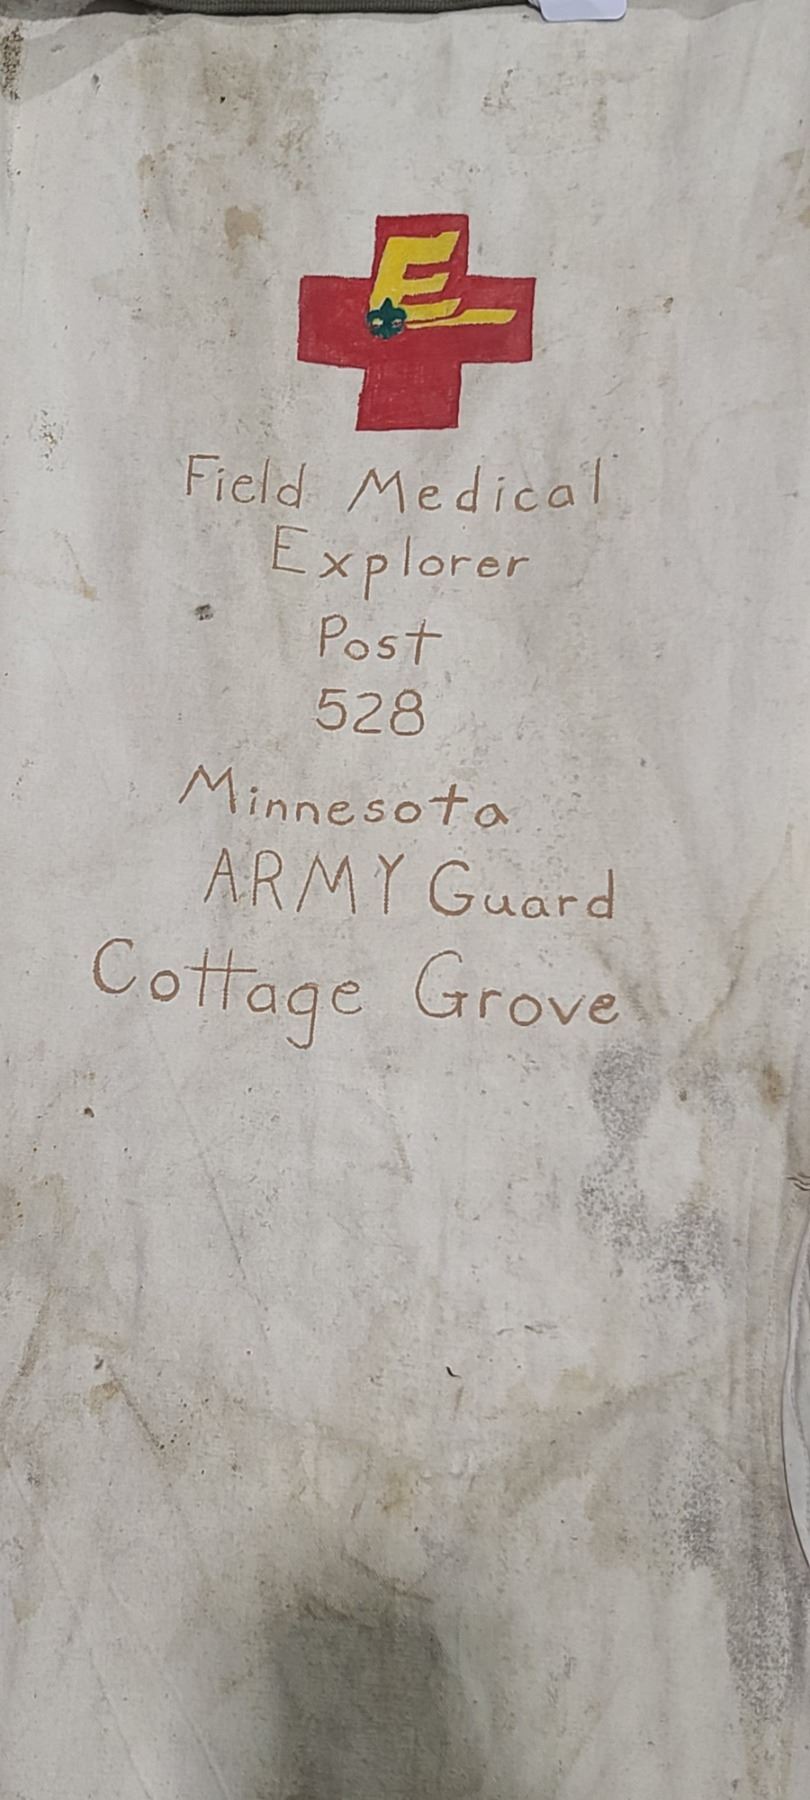 E
Field Medical
Explorer
Post
528
Minnesota
ARMY Guard
Cottage Grove